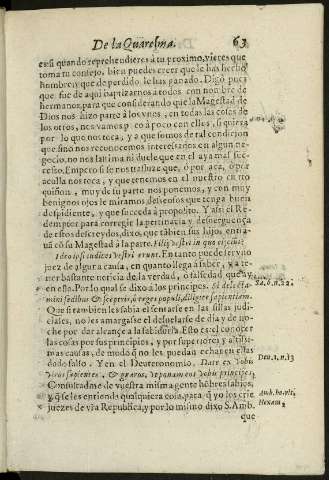 De la Quaresma. 63
es: si quando reprehendieres a tu proximo, vieres que
toma tu consejo, bien puedes creer que le has hecho
hombre, y que de perdido le has ganado. Digo pues
que fue de aqui baptizarnos a todos con nombre de
hermanos, para que considerando que la Magestad de
Dios nos hizo parte a los vnos, en todas las cosas de
los otros, nos vamos poco a poco con ellos, si quiera
por lo que nos toca; y a que somos de tal condicion
que sino nos reconocemos interessados en algun ne-
gocio, no nos lastima ni duele que en el aya mal suc-
cesso. Empero si se nos trasluze que, ò por aca, ò por a
culla nos toca, y que tenemos en el nuestro cierto
quiñon, muy de su parte nos ponemos, y con muy
benignos ojos le miramos, desseosos que tenga buen
despidiente, y que succeda a proposito. Y assi el Re-
demptor para corregir la pertinacia y desuerguença
de estos descreydos, dixo, que tãbien sus hijos, entra-
uã cõ su Magestad à la parte. Filij vestri in quo eijciũt?
Ideo ipsi iudices vestri erunt. En tanto puede ser vno
juez de alguna causa, en quanto llega à saber, y a te-
ner bastante noticia de la verdad, o falsedad que ay
en esta. Por lo qual se dixo a los principes. Si delecta-
mini sedibus & sceptris, ò reges populi, diligite sapientiam.
Que si tambien les sabia el sentarse en las sillas judi-
ciales, no les amargasse el desuelarse de dia y de no-
che por dar alcançe a la sabiduria. Esto es el conocer
las cosas por sus principios, y por superiores y altissi-
mas causas, de modo q̃ no les puedan echar en ellas
dodo falso. Y en el Deuteronomio. Date ex vobis
viros sapientes, & gnaros, & ponam eos vobis principes,
Consultadme de vuestra misma gente hõbres sabios,
y q̃ se les entienda qualquiera cosa, para q̃ yo los crie
juezes de vr̃a Republica, y por lo mismo dixo S. Amb.
que
Sa. 6. n. 22.
Deu. 1. n. 13
Amb. ho. vlt.
Hexam.